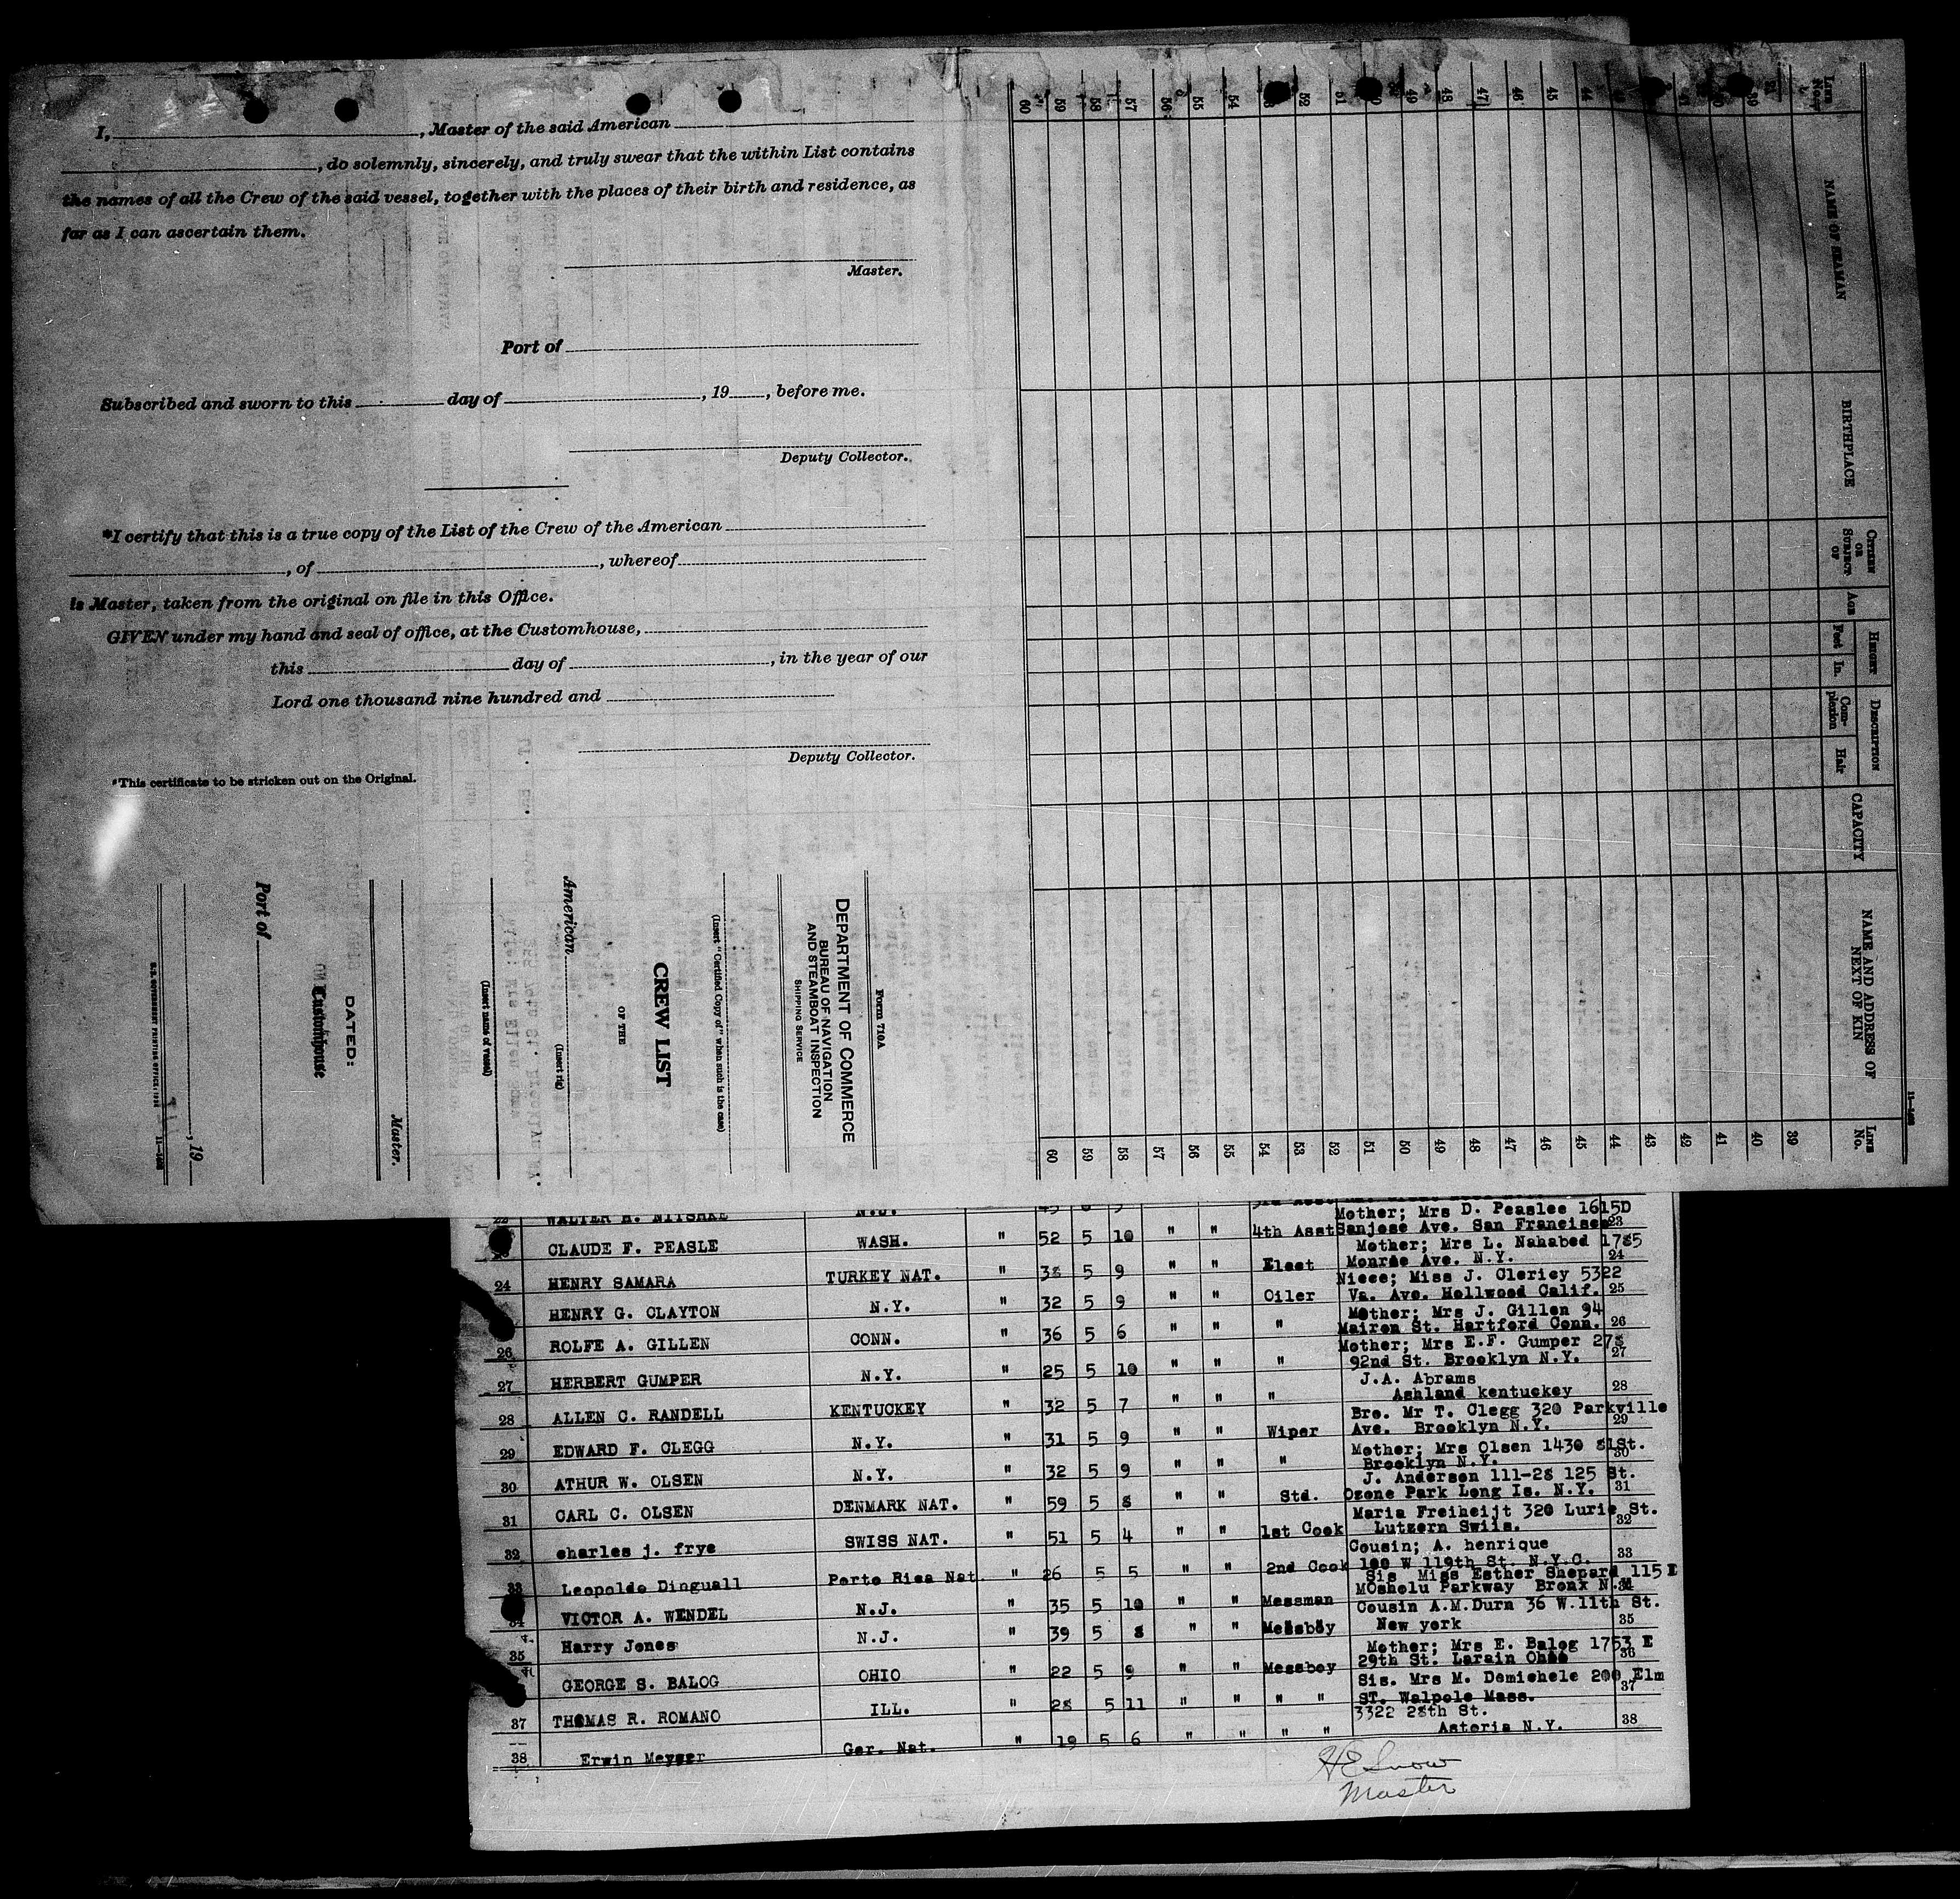 I, , Master of the said American
, do solemnly, sincerely, and truly swear that the within List contains
the names of all the Crew of the said vessel, together with the places of their birth and residence, as
far as I can ascertain them.
Master.
Port of
Subscribed and sworn to this day of , 19 , before me.
Deputy Collector.
*I certify that this is a true copy of the List of the Crew of the American
, of , whereof
is Master, taken from the original on file in this Office.
GIVEN under my hand and seal of office, at the Customhouse,
this day of , in the year of our
Lord one thousand nine hundred and
Deputy Collector.
*This certificate to be stricken out on the Original.
Form 710A
DEPARTMENT OF COMMERCE
BUREAU OF NAVIGATION
AND STEAMBOAT INSPECTION
SHIPPING SERVICE
(Insert "Certified Copy of" when such is the case)
CREW LIST
OF THE
American
(Insert rig)
(Insert name of vessel)
Master.
DATED:
Customhouse
Port of
, 19
U.S. GOVERNMENT PRINTING OFFICE
LINE No. NAME OF SEAMAN BIRTHPLACE CITIZEN OR SUBJECT OF AGE HEIGHT Feet In. DESCRIPTION Complexion Hair CAPACITY NAME AND ADDRESS OF NEXT OF KIN LINE No.
39
40
41
42
43
44
45
46
47
48
49
50
51
52
53
54
55
56
57
58
59
60
WALTER H. NITSHKE N.J.
Mother; Mrs D. Peaslee 1615D
CLAUDE F. PEASLE WASH. " 52 5 10 " " 4th Asst Sanjose Ave. San Francisco 23
Mother; Mrs L. Nahabed 1785
24 HENRY SAMARA TURKEY NAT. " 38 5 9 " " Elect Monroe Ave. N.Y. 24
Niece; Miss J. Clericy 5322
HENRY G. CLAYTON N.Y. " 32 5 9 " " Oiler Va. Ave. Hollwood Calif. 25
Mother; Mrs J. Gillen 94
26 ROLFE A. GILLEN CONN. " 36 5 6 " " " Mairon St. Hartford Conn. 26
Mother; Mrs E.F. Gumper 278
27 HERBERT GUMPER N.Y. " 25 5 10 " " " 92nd St. Brooklyn N.Y. 27
J.A. Abrams
28 ALLEN C. RANDELL KENTUCKEY " 32 5 7 " " " Ashland kentuckey 28
Bro. Mr T. Clegg 320 Parkville
29 EDWARD F. CLEGG N.Y. " 31 5 9 " " Wiper Ave. Brooklyn N.Y. 29
Mother; Mrs Olsen 1430 81St.
30 ATHUR W. OLSEN N.Y. " 32 5 9 " " " Brooklyn N.Y. 30
J. Anderson 111-28 125 St.
31 CARL C. OLSEN DENMARK NAT. " 59 5 8 " " Std. Ozone Park Long Is. N.Y. 31
Maria Freiheijt 320 Lurie St.
32 charles j. frye SWISS NAT. " 51 5 4 " " 1st Cook Lutzern Swiis. 32
Cousin; A. henrique
33 Leopoldo Dinguall Porto Rica Nat. " 26 5 5 " " 2nd Cook 100 W 119th St. N.Y.C. 33
Sis Miss Esther Shepard 115 E
34 VICTOR A. WENDEL N.J. " 35 5 10 " " Messman MOsholu Parkway Bronx N.Y. 34
Cousin A.M.Durn 36 W.11th St.
35 Harry Jones N.J. " 39 5 8 " " Messboy New york 35
Mother; Mrs E. Balog 1753 E
GEORGE S. BALOG OHIO " 22 5 9 " " Messboy 29th St. Larain Ohio 36
Sis. Mrs M. Demichele 200 Elm
37 THOMAS R. ROMANO ILL. " 28 5 11 " " " " ST. Walpole Mass. 37
3322 28th St.
38 Erwin Meyser Ger. Nat. " 19 5 6 " " " " Astoria N.Y. 38
HE Snow
Master